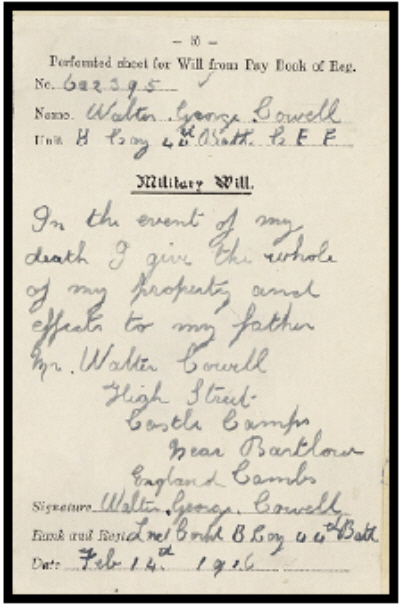 — 55 —
Perforated sheet for Will from Pay Book of Reg.
No. 622395
Name. Walter George Cowell
Unit. B Coy 44th Batt. C E F
Military Will.
In the event of my
death I give the whole
of my property and
effects to my father
Mr. Walter Cowell
High Street
Castle Camps
Near Bartlow
England Cambs
Signature Walter George Cowell
Rank and Regt Lne Corpl B Coy 44th Batt
Date Feb 14th 1916